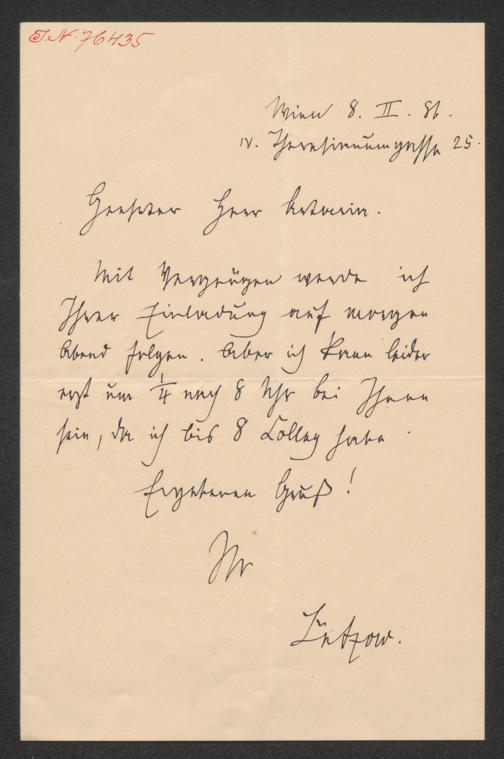 J.N. 76435
Wien 8. II. 86.
IV. Theresianumgasse 25.
Geehrter Herr Artaria.
Mit Vergnügen werde ich
Ihrer Einladung auf morgen
Abend folgen. Aber ich kann leider
erst um 1/4 nach 8 Uhr bei Ihnen
sein, da ich bis 8 Colleg habe.
Ergebenen Gruß!
Ihr
Lützow.